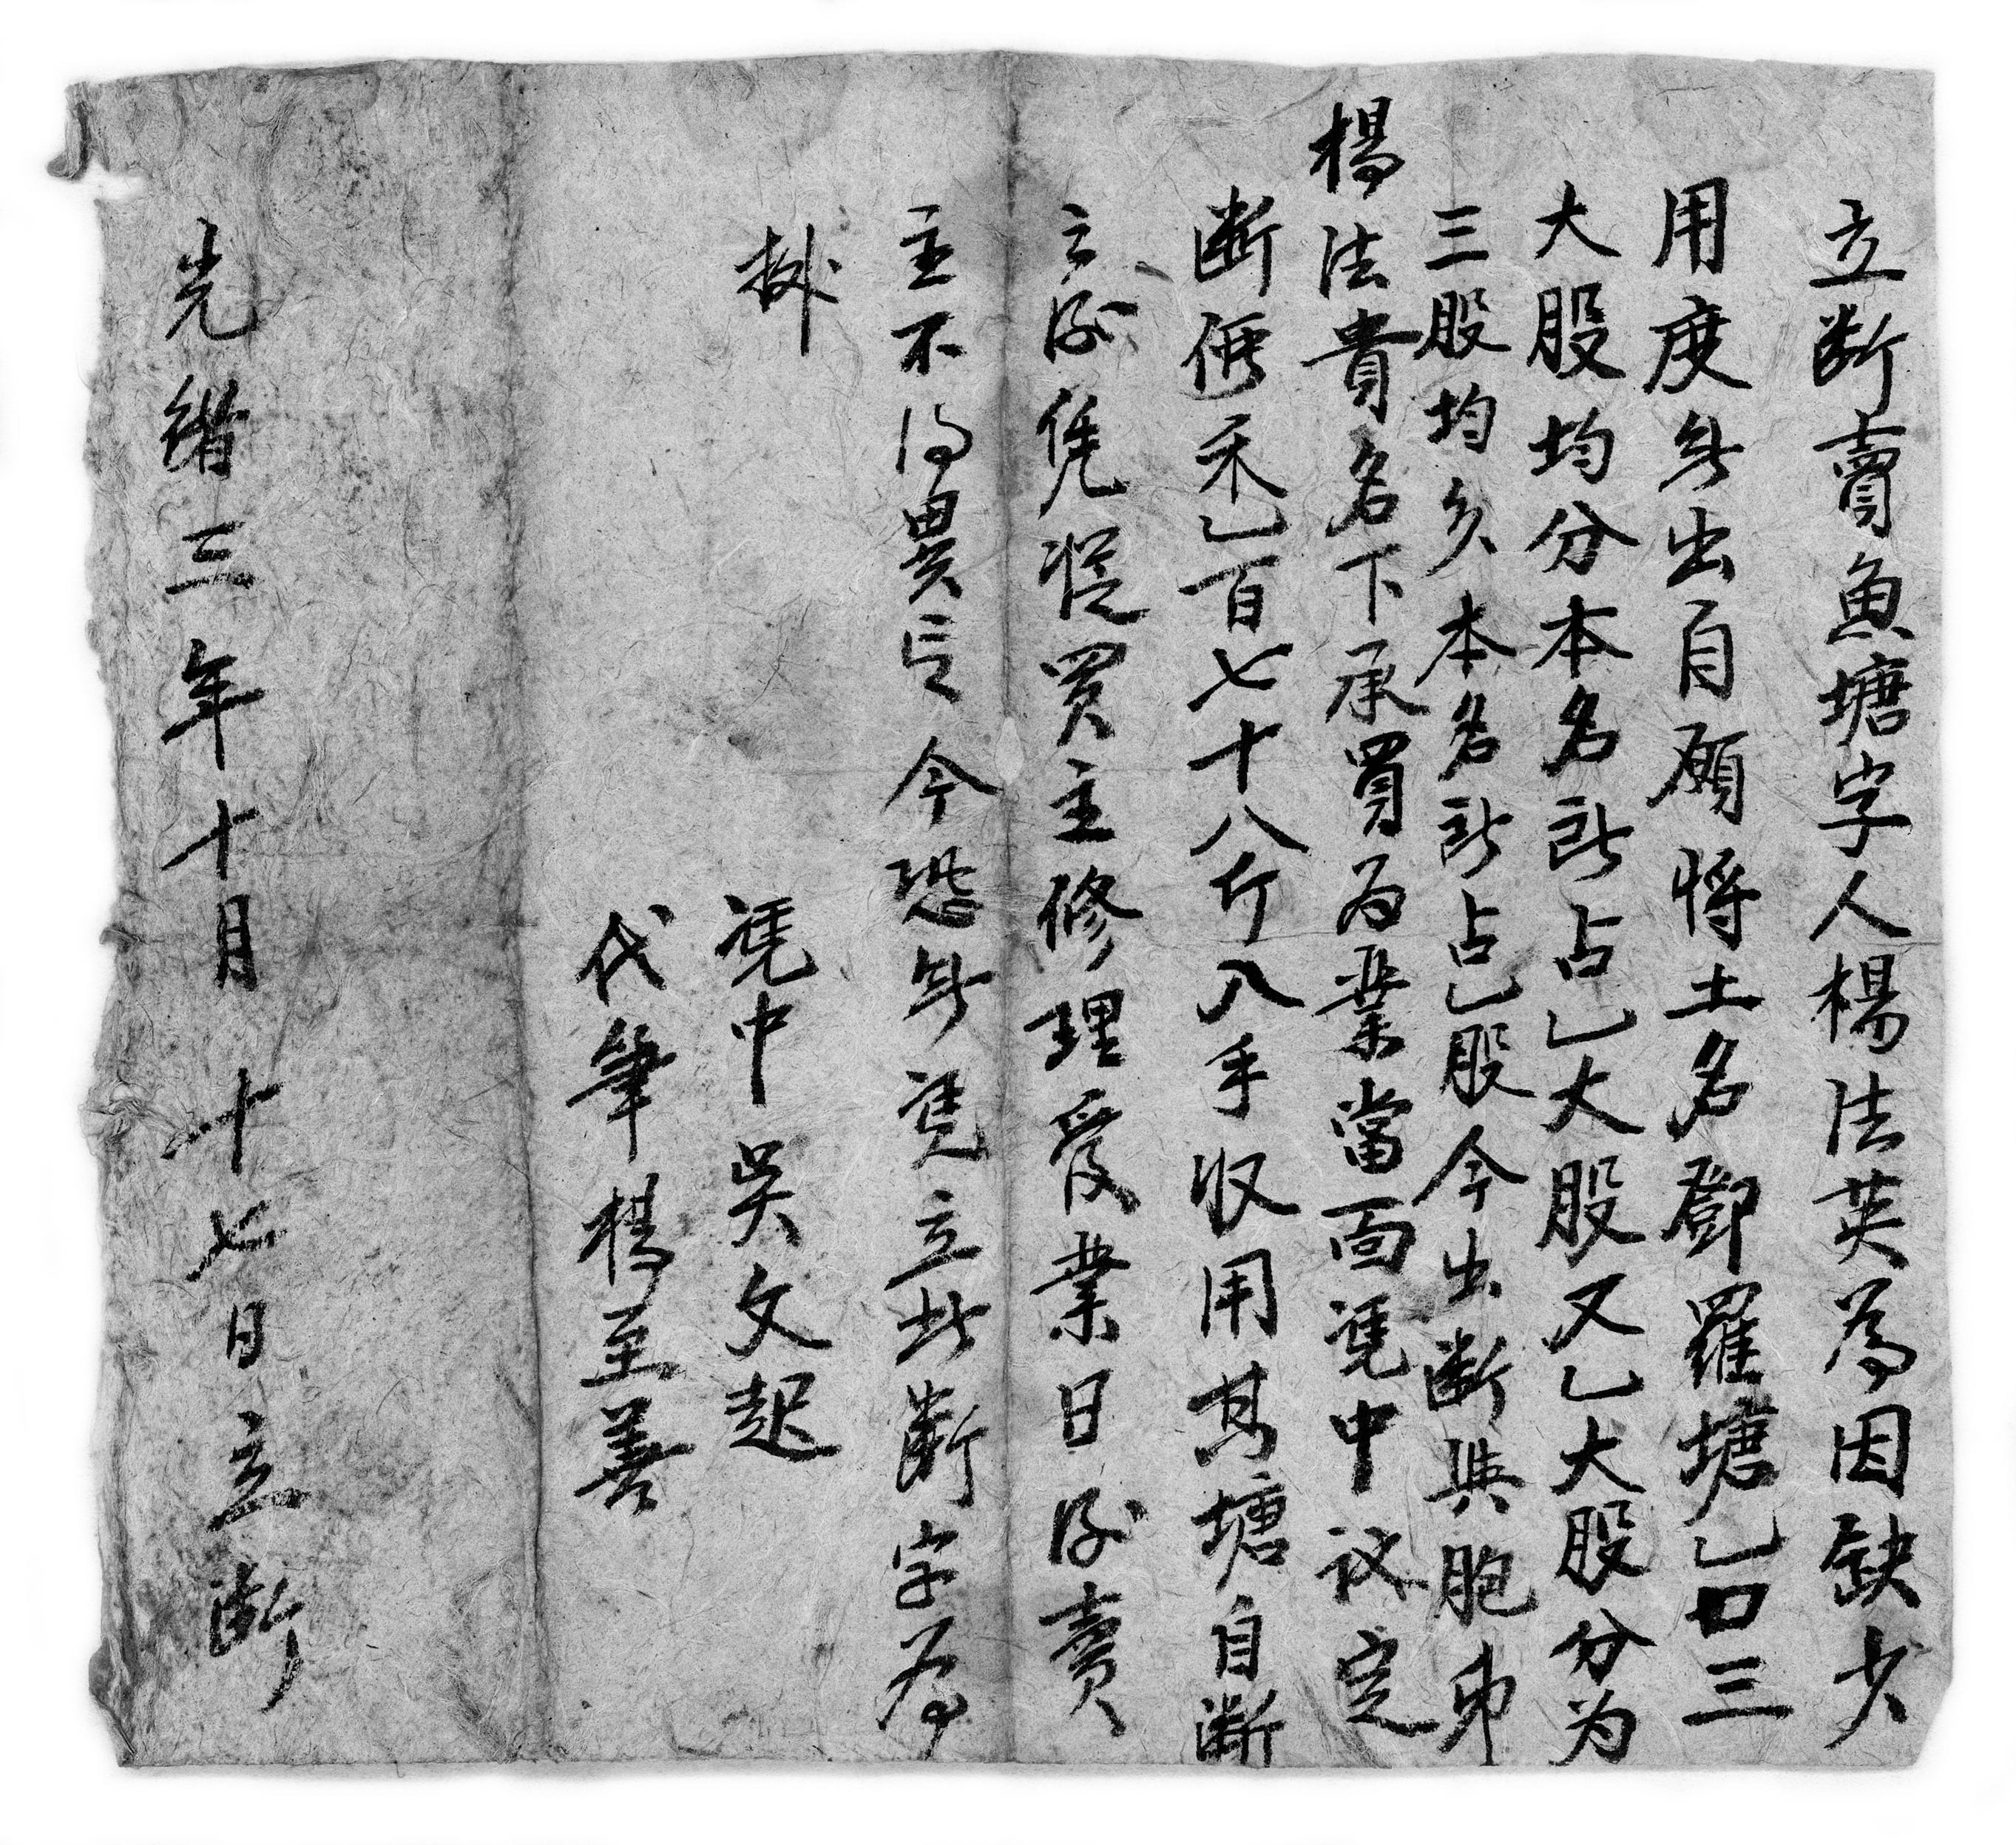 立断賣魚塘字人楊法英為因缺少
用度無出自願将土名鄧羅塘乙口三
大股均分本名所占乙大股又乙大股分为
三股均分本名所占乙股今出断與胞弟
楊法貴名下承買为業當面凴中议定
断價禾乙百七十八斤入手收用其塘自断
之後凭從買主修理受業日後賣
主不得異言今恐無凴立此断字為
據
凴中 吴文起
代筆 楊至善
光緒三年十月十七日立断